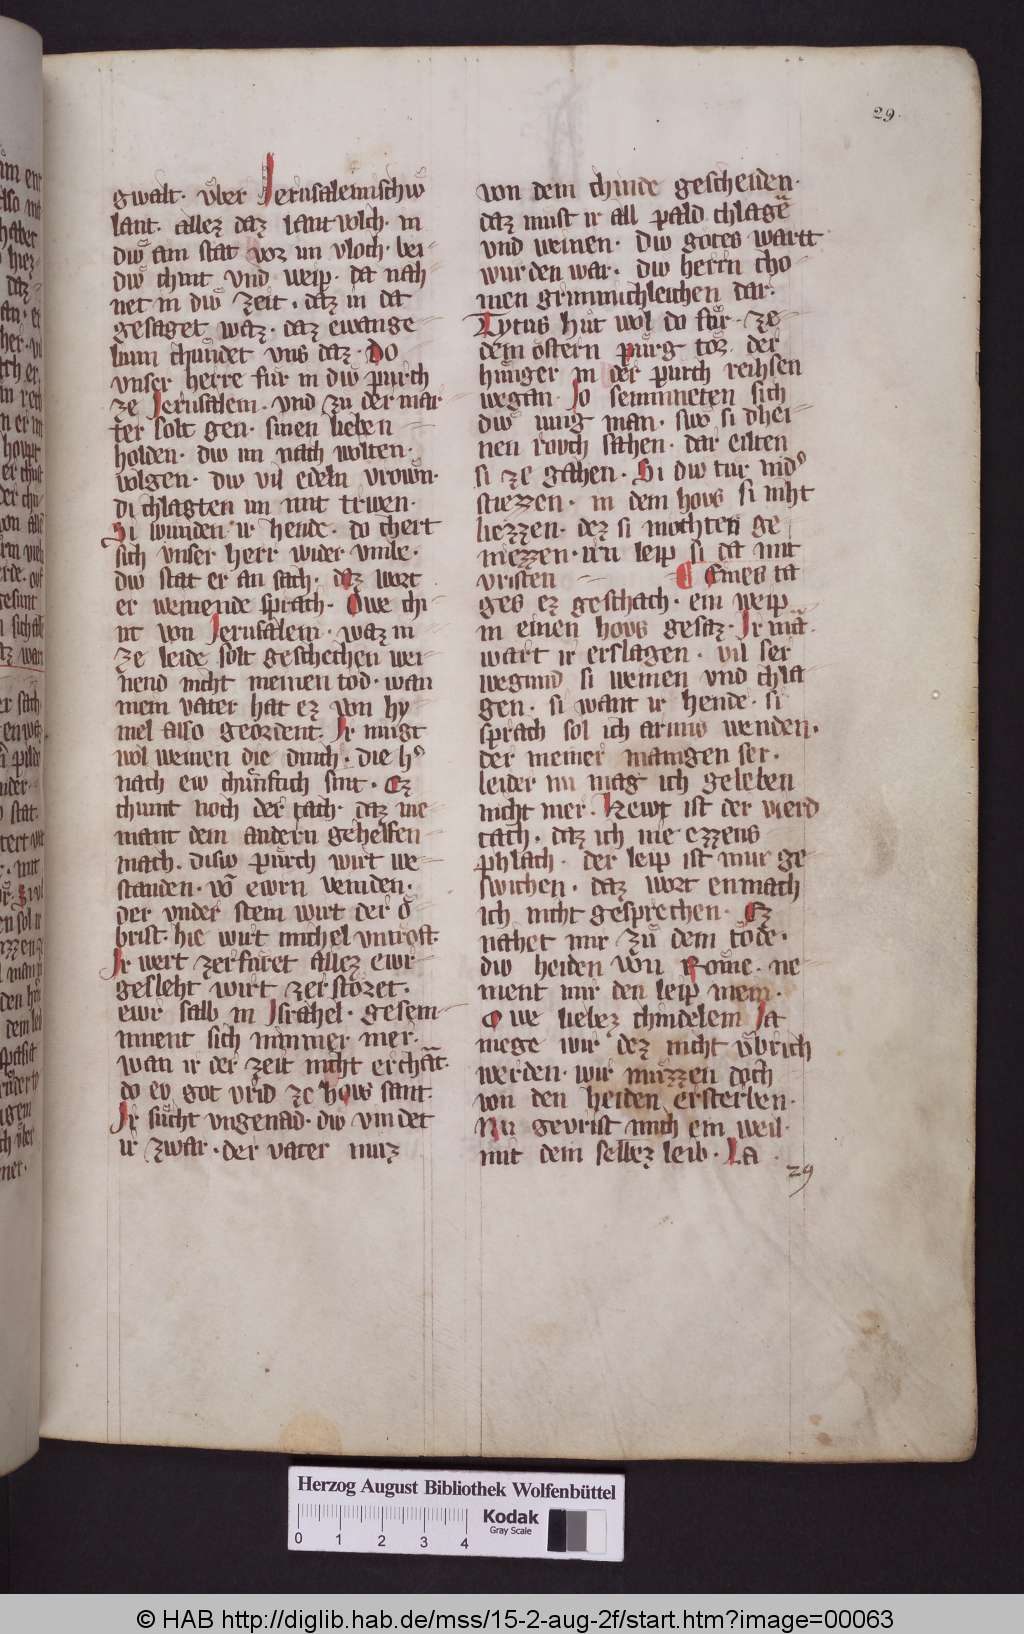 29.
gwalt. vͤber Jerusalemischiv
lant. allez daz lantvolch. in
diw ain stat vor im vloch. bei-
diw chint vnd weip. da nah-
net in diw zeit. daz in da
gesaget waz. daz ewange-
lium chuͤndet vns daz. Do
vnser herre fur in diw purch
ze Jerusalem. vnd zu der mar-
ter solt gen. sinen lieben
holden. diw im nach wolten.
volgen. diw vil edeln vrowͤn.
di chlagten im mit triwen.
Si wunden ir hende. do chert
sich vnser herr wider vmbe.
diw stat er an sach. daz wort
er weinende sprach. Owe chi-
nt von Jerusalem. waz in
ze leide solt geschechen wei-
nend nicht meinen tod. wan
mein vater hat ez von hy-
mel also geordent. Ir mugt
wol weinen die durich. die h᾽
nach ew chuͤnftich sint. Ez
chumt noch der tach. daz nie-
mant dem andern gehelfen
mach. disiv puͤrch wirt ve-
standen. võ ewrn veinden.
der vnder stem wirt der o᷃
brist. hie wirt michel vntrost.
Ir wert zerfuͤret allez ewr
gesleht wirt zerstoͤret.
ewr salb in Israhel. gesem-
nnent sich nimmer mer.
wan ir der zeit nicht erchãt.
do ev got vrid ze hows sant.
Ir suͤcht vngenad. diw vindet
ir zwar. der vater muz
von dem chinde gescheiden.
daz must ir all pald chlagẽ
vnd weinen. diw gotes wartt
wurden war. diw herrn cho-
men grimmichleichen dar.
Tytus huͤt wol do fuͤr. ze
dem ostern puͤrg toͤr. der
huͤnger in der purch reihsen
wegan. Jo semmneten sich
diw iung man. swo si dhei-
nen rovch sahen. dar eilten
si ze gahen. Si diw tur nid᾽
stiezzen. in dem hovs si niht
liezzen. dez si mochten ge
niezzen. irn leip si da mit
vristen ¶ Eines ta
ges ez geschach. ein weip
in einen hovs gesaz. Ir mã.
wart ir erslagen. vil ser
wegund si weinen vnd chla
gen. si want ir hende. si
sprach sol ich armiv wenden.
der meiner manigen ser.
leider nu mag ich geleben
nicht mer. Hewt ist der vierd
tach. daz ich nie ezzens
phlach. der leip ist mir ge-
swichen. daz wort enmach
ich nicht gesprechen. Ez
nahet mir zuͤ dem toͤde.
diw heiden von Rome. ne
ment mir den leip mein.
O we liebez chindelein Ja
mege wir dez nicht vͤbrich
werden. wir muͤzzen doch
von den heiden ersterben.
Nu gevrist mich ein weil.
mit dem selbez leib. La
29
Herzog August Bibliothek Wolfenbüttel
Kodak
Gray Scale
0 1 2 3 4
© HAB http://diglib.hab.de/mss/15-2-aug-2f/start.htm?image=00063